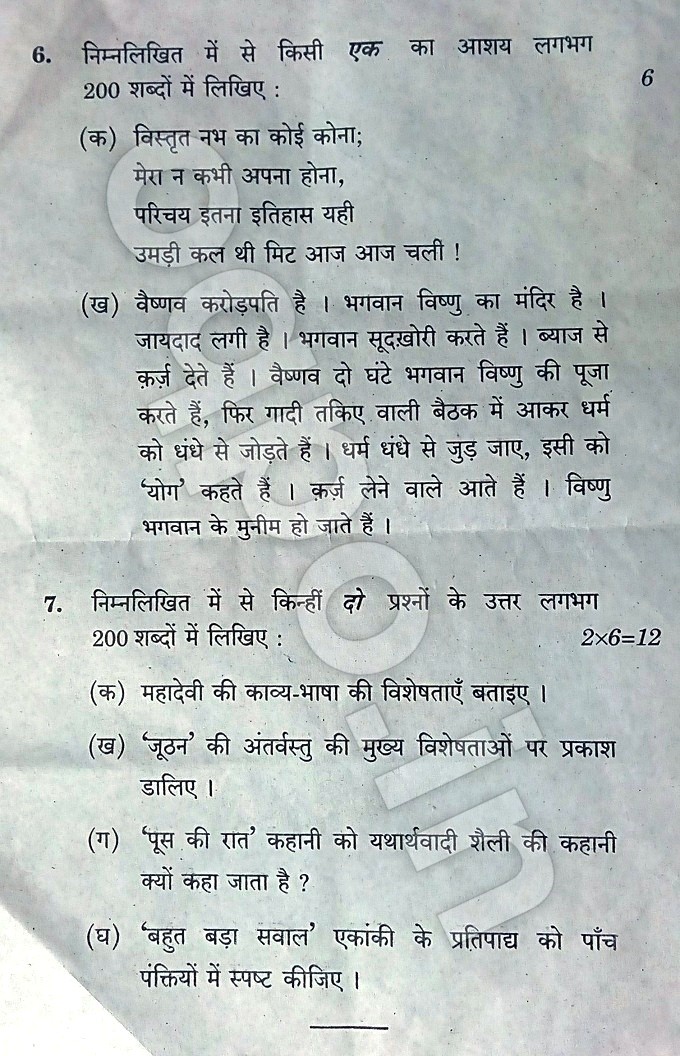 6. निम्नलिखित में से किसी एक का आशय लगभग
200 शब्दों में लिखिए : 6
(क) विस्तृत नभ का कोई कोना;
मेरा न कभी अपना होना,
परिचय इतना इतिहास यही
उमड़ी कल थी मिट आज आज चली !
(ख) वैष्णव करोड़पति है । भगवान विष्णु का मंदिर है ।
जायदाद लगी है । भगवान सूदख़ोरी करते हैं । ब्याज से
क़र्ज़ देते हैं । वैष्णव दो घंटे भगवान विष्णु की पूजा
करते हैं, फिर गादी तकिए वाली बैठक में आकर धर्म
को धंधे से जोड़ते हैं । धर्म धंधे से जुड़ जाए, इसी को
‘योग’ कहते हैं । क़र्ज़ लेने वाले आते हैं । विष्णु
भगवान के मुनीम हो जाते हैं ।
7. निम्नलिखित में से किन्हीं दो प्रश्नों के उत्तर लगभग
200 शब्दों में लिखिए : 2×6=12
(क) महादेवी की काव्य-भाषा की विशेषताएँ बताइए ।
(ख) ‘जूठन’ की अंतर्वस्तु की मुख्य विशेषताओं पर प्रकाश
डालिए ।
(ग) ‘पूस की रात’ कहानी को यथार्थवादी शैली की कहानी
क्यों कहा जाता है ?
(घ) ‘बहुत बड़ा सवाल’ एकांकी के प्रतिपाद्य को पाँच
पंक्तियों में स्पष्ट कीजिए ।